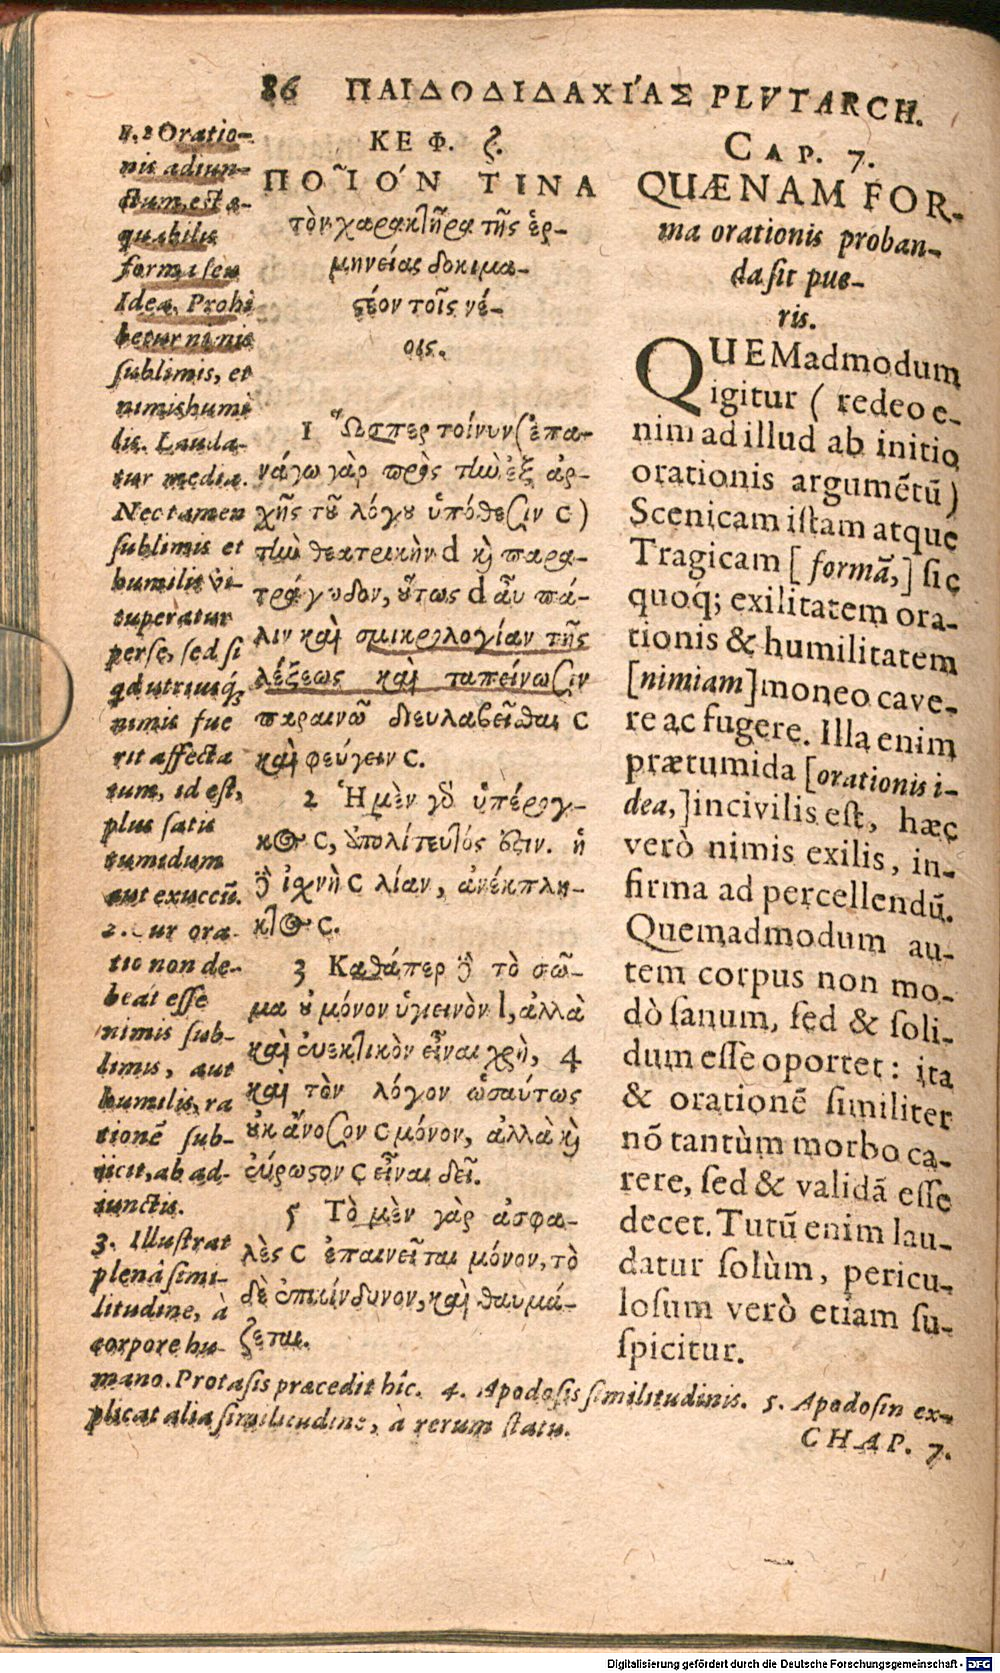 86 ΠΑΙΔΟΔΙΔΑΧΊΑΣ PLVTARCH.
1. 2 Oratio-
nis adiun-
ctum, est æ-
quabilis
forma seu
Idea. Prohi
betur ni nis
sublimis, et
nimis humi
lis. Lauda-
tur media.
Nec tamen
sublimis et
humilis vi-
tuperatur
per se, sed si
qd utriusq;
nimis fue
rit affecta
tum, id est,
plus satis
tumidum
aut exuccū.
2. Cur ora-
tio non de-
beat esse
nimis sub-
limis, aut
humilis, ra
tionē sub-
iicit, ab ad-
iunctis.
3. Illustrat
plenâ simi-
litudine, à
corpore hu-
mano. Protasis præcedit hîc. 4. Apodosis similitudinis. 5. Apodosin ex-
plicat alia similitudine, à rerum statu.
ΚΕΦ. ζ.
ΠΟῖΟΝ ΤΙΝΑ
τὸν χαρακτῆρα τῆς ἑρ-
μηνείας δοκιμα-
ϛέον τοῖς νέ-
οις.
1 Ὥσπερ τοίνυν (ἐπα-
νάγω γὰρ πρὸς τὴν ἐξ ἀρ-
χῆς τοῦ λόγου ὑπόθεσιν C)
τὴν θεατρικὴν d καὶ παρα-
τράγῳδον, οὕτως d αὖ πά-
λιν καὶ σμικρολογίαν τῆς
λέξεως καὶ ταπείνωσιν
παραινῶ διευλαβεῖσθαι C
καὶ φεύγειν C.
2 Ἡ μὲν γὸ ὑπέρογ-
κος C, ἀπολίτευτός ἐστιν. ἡ
δὲ ἰχνὴ C λίαν, ἀνέκπλη-
κτος C.
3 Καθάπερ δὲ τὸ σῶ-
μα οὐ μόνον ὑγιεινὸν l, ἀλλὰ
καὶ εὐεκτικὸν εἶναι χρὴ, 4
καὶ τὸν λόγον ὡσαύτως
οὐκ ἄνοσον C μόνον, ἀλλὰ καὶ
εὔρωϛον C εἶναι δεῖ.
5 Τὸ μὲν γὰρ ἀσφα-
λὲς C ἐπαινεῖται μόνον, τὸ
δὲ ἐπικίνδυνον, καὶ θαυμά-
ζεται.
CAP. 7.
QUÆNAM FOR-
ma orationis proban-
da sit pue-
ris.
QUEMadmodum
igitur (redeo e-
nim ad illud ab initio
orationis argumētū)
Scenicam istam atque
Tragicam [formā,] sic
quoq; exilitatem ora-
tionis & humilitatem
[nimiam] moneo cave-
re ac fugere. Illa enim
prætumida [orationis i-
dea,] incivilis est, hæc
verò nimis exilis, in-
firma ad percellendū.
Quemadmodum au-
tem corpus non mo-
dò sanum, sed & soli-
dum esse oportet: ita
& orationē similiter
nō tantùm morbo ca-
rere, sed & validā esse
decet. Tutū enim lau-
datur solùm, pericu-
losum verò etiam su-
spicitur.
CHAP. 7.
Digitalisierung gefördert durch die Deutsche Forschungsgemeinschaft - DFG